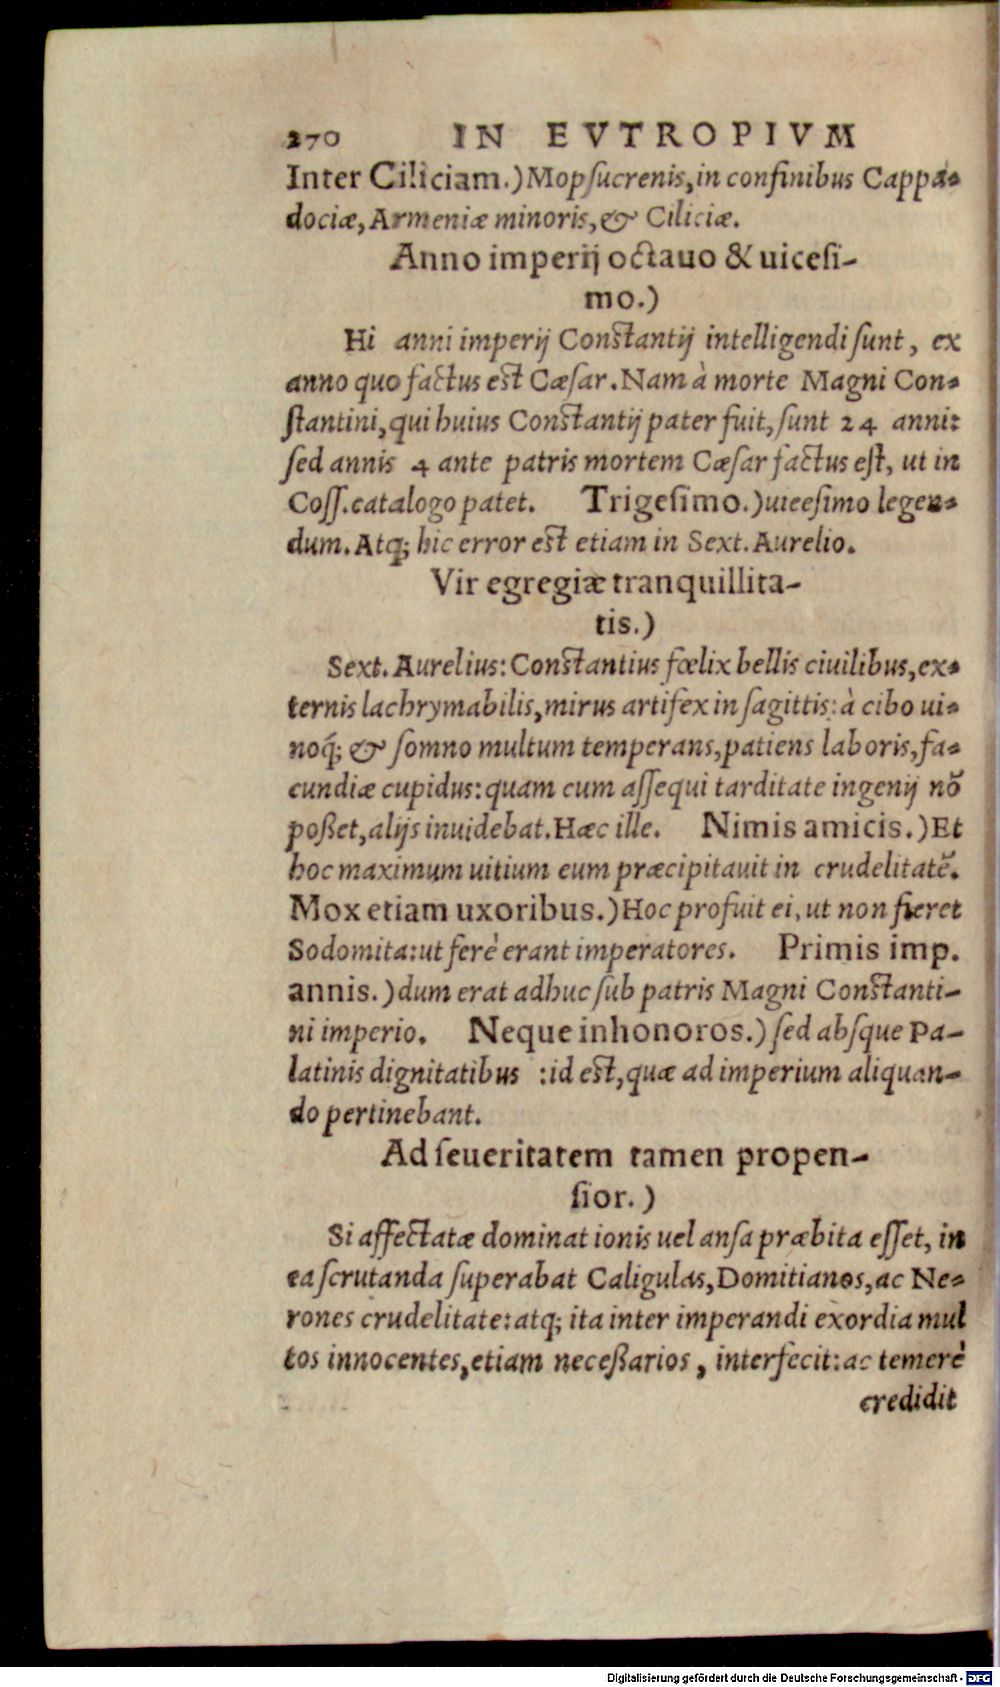 270 IN EVTROPIVM
Inter Ciliciam.) Mopsucrenis, in confinibus Cappa-
dociæ, Armeniæ minoris, & Ciliciæ.
Anno imperij octauo & uicesi-
mo.)
Hi anni imperij Constantij intelligendi sunt, ex
anno quo factus est Cæsar. Nam à morte Magni Con-
stantini, qui huius Constantij pater fuit, sunt 24 anni:
sed annis 4 ante patris mortem Cæsar factus est, ut in
Coss. catalogo patet. Trigesimo.) uicesimo legen-
dum. Atq; hic error est etiam in Sext. Aurelio.
Vir egregiæ tranquillita-
tis.)
Sext. Aurelius: Constantius fœlix bellis ciuilibus, ex-
ternis lachrymabilis, mirus artifex in sagittis: à cibo ui-
noq́; & somno multum temperans, patiens laboris, fa-
cundiæ cupidus: quam cum assequi tarditate ingenij nõ
poßet, alijs inuidebat. Hæc ille. Nimis amicis.) Et
hoc maximum uitium eum præcipitauit in crudelitatẽ.
Mox etiam uxoribus.) Hoc profuit ei, ut non fieret
Sodomita: ut ferè erant imperatores. Primis imp.
annis.) dum erat adhuc sub patris Magni Constanti-
ni imperio. Neque inhonoros.) sed absque Pa-
latinis dignitatibus : id est, quæ ad imperium aliquan-
do pertinebant.
Ad seueritatem tamen propen-
sior.)
Si affectatæ dominationis uel ansa præbita esset, in
ea scrutanda superabat Caligulas, Domitianos, ac Ne-
rones crudelitate: atq; ita inter imperandi exordia mul
tos innocentes, etiam neceßarios, interfecit: ac temerè
credidit
Digitalisierung gefördert durch die Deutsche Forschungsgemeinschaft - DFG